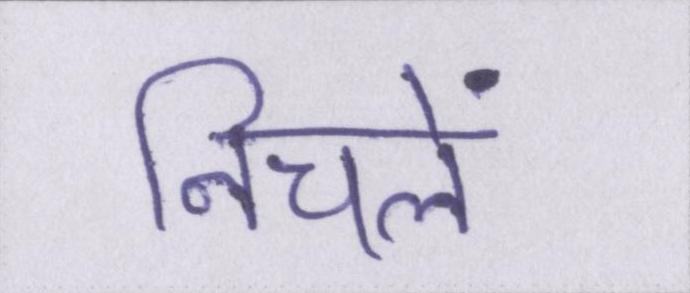 निचलें